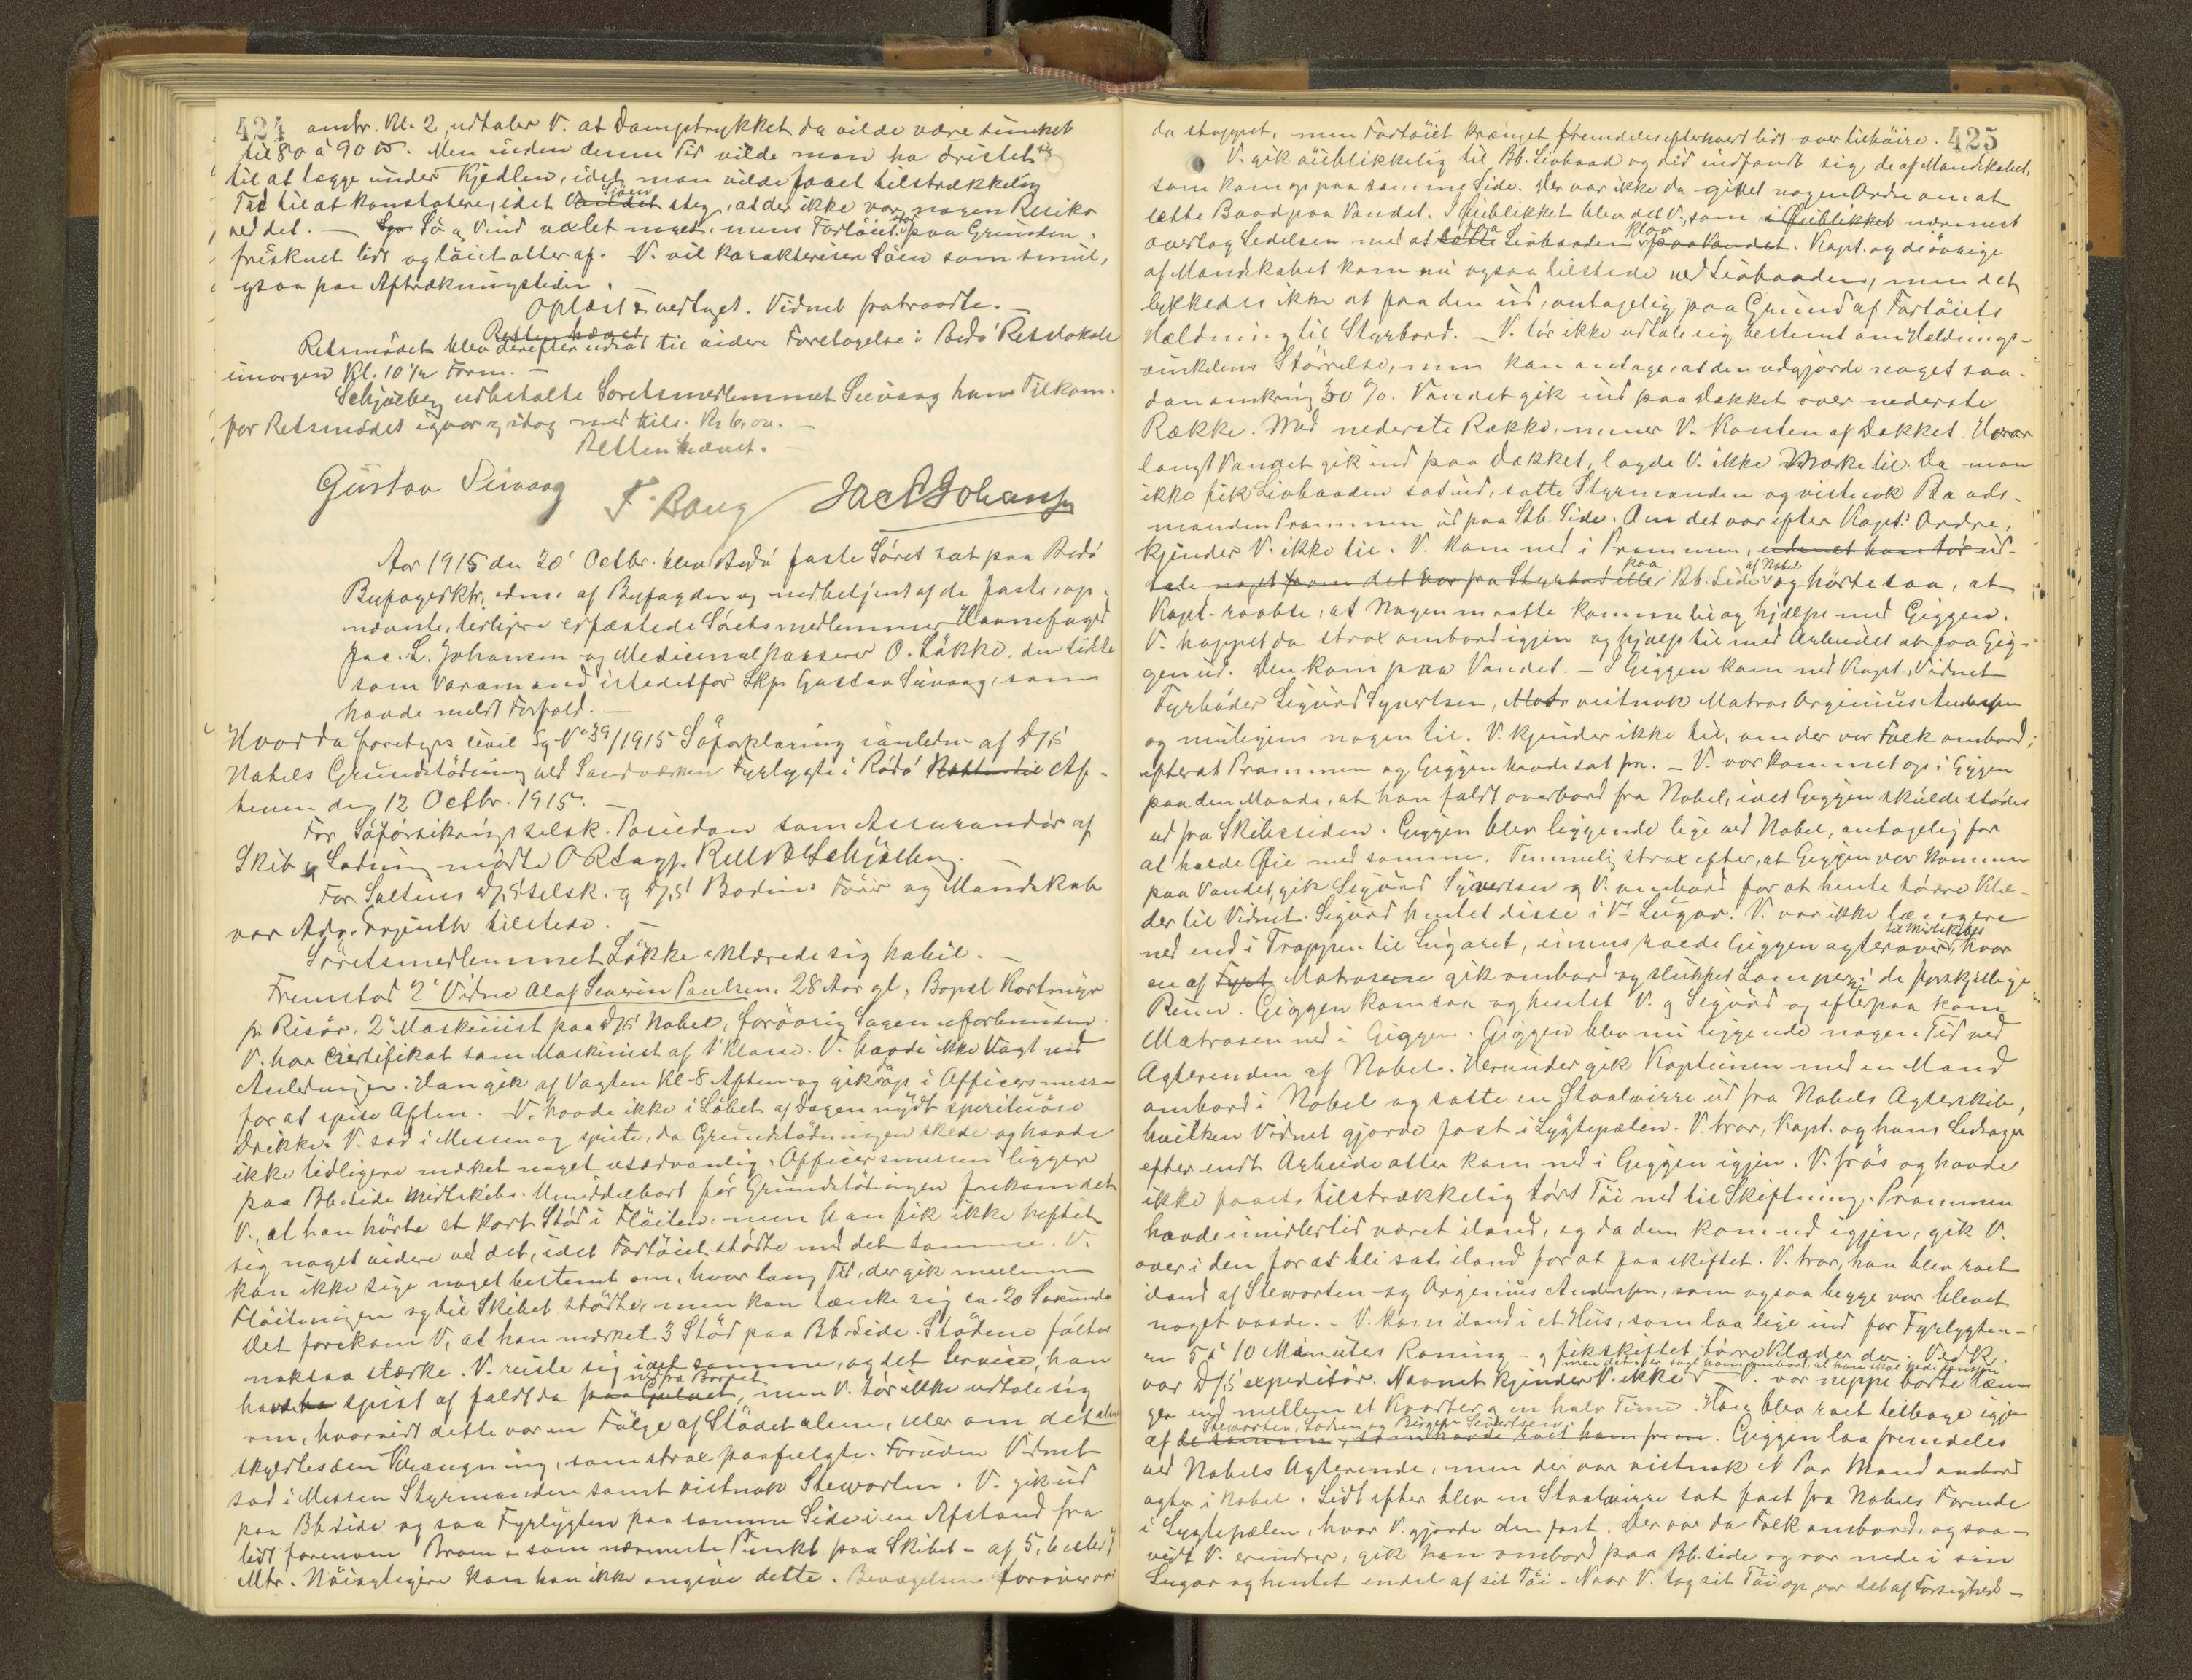 424 ombr. Kl. 2, udtaler V. at Damptrykket da vilde være sunket
til 80 à 90 ℔. Men inden denne Tid vilde man ha dristet sig
til at lægge under Kjedlen, idet man vilde faaet tilstrækkelig
Tid til at konstatere, idet Vandet Sjøen steg, at der ikke var nogen Risiko
ved det. — Sjø og Vind ved det noget, mens Fartøiet stod paa Grunden,
frisknet lidt og løiet atter af. V. vil karakterisere Søen som smul,
ogsaa paa Aftrækningstiden.
Oplæst & vedtaget. Vidnet fratraadte. —
Retten hævet
Retsmødet blev derefter udsat til videre Foretagelse i Bodø Retslokale
imorgen Kl. 10 ½ Form. —
Schjølberg udbetalte Søretsmedlemmet Sivaag hans Tilkom.
for Retsmødet igaar og idag med tils. Kr. 6,00. —
Retten hævet.
Gustav Sivaag F. Bang Jac L Johansen
Aar 1915 den 20' Octbr. blev Bodø faste Søret sat paa Bodø
Byfogedktr., adm. af Byfogden og medbetjent af de faste, op-
nævnte, tidligere edfæstede Søretsmedlemmer Havnefoged
Jac. L. Johansen og Medicinalkasserer O. Løkke, den sidste
som Varamand istedetfor Skp. Gustav Sivaag, som
havde meldt Forfald. —
Hvorda foretoges civil Sg. No 39/1915 Søforklaring ianledn. af D/S
Nobels Grundstødning ved Sandværken Fyrlygte i Rødø Natten til Af-
tenen den 12 Octbr. 1915. —
For Søforsikringsselsk. Poseidon som Assurandør af
Skib og Ladning mødte ORsagf. Schjølberg. —
For Saltens D/S selsk. og D/S Bodins Fører og Mandskab
var Adv. Erginth tilstede. —
Søretsmedlemmet Løkke erklærede sig habil. —
Fremstod 2' Vidne Olaf Severin Paulsen, 28 Aar gl., Bopæl Kortmyr
pr. Risør. 2' Maskinist paa D/S Nobel, forøvrig Sagen uforbunden.
V. har Certifikat som Maskinist af 1' Klasse. V. havde ikke Vagt ved
Anledningen. Han gik af Vagten Kl. 8 Aften og gik da op i Officersmessen
for at spise Aften. V. havde ikke i Løbet af Dagen nydt spirituøse
Drikke. V. sad i Messen og spiste, da Grundstødningen skede og havde
ikke tidligere mærket noget usædvanlig. Officersmessen ligger
paa Bb. Side Midtskibs. Umiddelbart før Grundstødningen forekom det
V., at han hørte et kort Stød i Fløiten, men han fik ikke heftet
sig noget videre ved det, idet Fartøiet stødte med det samme. V.
kan ikke sige noget bestemt om, hvor lang Tid, der gik mellem
Fløitningen og til Skibet stødte, men kan tænke sig ca. 20 Sekunder
Det forekom V., at han mærket 3 Stød paa Bb. Side. Stødene føltes
noksaa stærke. V. reiste sig idet samme, og det Servise, han
havde spist af faldt da paa Gulvet ned fra Bordet, men V. tør ikke udtale sig
om, hvorvidt dette var en Følge af Stødet alene, eller om det alene
skyldtes den Krængning, som strax paafulgte. Foruden Vidnet
sad i Messen Styrmanden samt vistnok Stewarten. V. gik ud
paa Bb. Side og saa Fyrlygten paa samme Side i en Afstand fra
lidt forenom Broen – som nærmeste Punkt paa Skibet – af 5, 6 eller 7
Mtr. Nøiagtigere kan han ikke angive dette. Bevægelsen forover var
425
da stoppet, men Fartøiet krænget fremdeles efterhvert lidt over tilhøire.
V. gik øieblikkelig til Bb. Livbaad og did indfandt sig de af Mandskabet,
som kom op paa samme Side. Der var ikke da givet nogen Ordre om at
sætte Baad paa Vandet. I Øieblikket blev det V., som i Øieblikket nærmest
overtog Ledelsen med at sætte faa Livbaaden klar paa Vandet. Kapt. og de øvrige
af Mandskabet kom nu ogsaa tilstede ved Livbaaden, men det
lykkedes ikke at faa den ud, antagelig paa Grund af Fartøiets
Hældning til Styrbord. — V. tør ikke udtale sig bestemt om Hældnings-
vinkelens Størrelse, men kan antage, at den udgjorde noget saa-
dan omkring 30 %. Vandet gik ind paa Dækket over nederste
Række. Med nederste Række, mener V. Kanten af Dækket. Hvor
langt Vandet gik ind paa Dækket, lagde V. ikke Mærke til. Da man
ikke fik Livbaaden sat ud, satte Styrmanden og vistnok Baads-
manden Prammen ud paa Stb. Side. Om det var efter Kapt.s Ordre,
kjender V. ikke til. V. kom ned i Prammen, uden at han tør ud-
tale noget om det var fra Styrbord eller paa Bb. Side af Nobel og hørte saa, at
Kapt. raabte, at Nogen maatte komme til og hjælpe med Giggen.
V. hoppet da strax ombord igjen og hjalp til med Arbeidet at faa Gig-
gen ud. Den kom paa Vandet. — I Giggen kom ned Kapt., Vidnet
Fyrbøder Sigurd Syvertsen, Mat. vistnok Matros Arginius Andersen
og muligens nogen til. V. kjender ikke til, om der var Folk ombord,
efterat Prammen og Giggen havde sat fra. — V. var kommet op i Giggen
paa den Maade, at han faldt overbord fra Nobel, idet Giggen skulde stødes
ud fra Skibssiden. Giggen blev liggende lige ved Nobel, antagelig for
at holde Øie med samme. Temmelig strax efter, at Giggen var kommen
paa Vandet, gik Sigurd Syvertsen og V. ombord for at hente tørre Klæ-
der til Vidnet. Sigurd hentet disse i V.s Lugar. V. var ikke længere
ned end i Trappen til Lugaret, imens roede Giggen agterover til Midtskibs, hvor
en af Fyrb. Matroserne gik ombord og slukket Lamperne i de forskjellige
Rum. Giggen kom saa og hentet V. og Sigurd og efterpaa kom
Matrosen ned i Giggen. Giggen blev nu liggende nogen Tid ved
Agterenden af Nobel. Herunder gik Kaptenen med en Mand
ombord i Nobel og satte en Staalwirre ud fra Nobels Agterskib,
hvilken Vidnet gjorde fast i Lygtepælen. V. tror, Kapt. og hans Ledsager
efter endt Arbeide atter kom ned i Giggen igjen. V. frøs og havde
ikke faaet tilstrækkelig tørt Tøi ned til Skiftning. Prammen
havde imidlertid været iland, og da den kom ud igjen, gik V.
over i den for at bli sat iland for at faa skiftet. V. tror, han blev roet
iland af Stewarten og Arginius Andersen, som ogsaa begge var blevet
noget vaade. – V. kom iland i et Hus, som laa lige ind for Fyrlygten –
en 5 à 10 Minutes Roning – og fik skiftet tørre Klæder der.
var D/S expeditør. Navnet kjender V. ikke — V. var neppe borte læn-
ger end mellem et Kvarter og en halv Time. Han blev roet tilbage igjen
af de samme, som havde roet ham frem Stewarten, Lodsen og Birger Sivertsen. Giggen laa fremdeles
ved Nobels Agterende, men der var vistnok et Par Mand ombord
agter i Nobel. Lidt efter blev en Staalwirre sat fast fra Nobels Forende
i Lygtepælen, hvor V. gjorde den fast. Der var da Folk ombord, og saa-
vidt V. erindrer, gik han ombord paa Bb. Side og var nede i sin
Lugar og hentet endel af sit Tøi. Naar V. tog sit Tøi op, var det af Forsigtigheds-